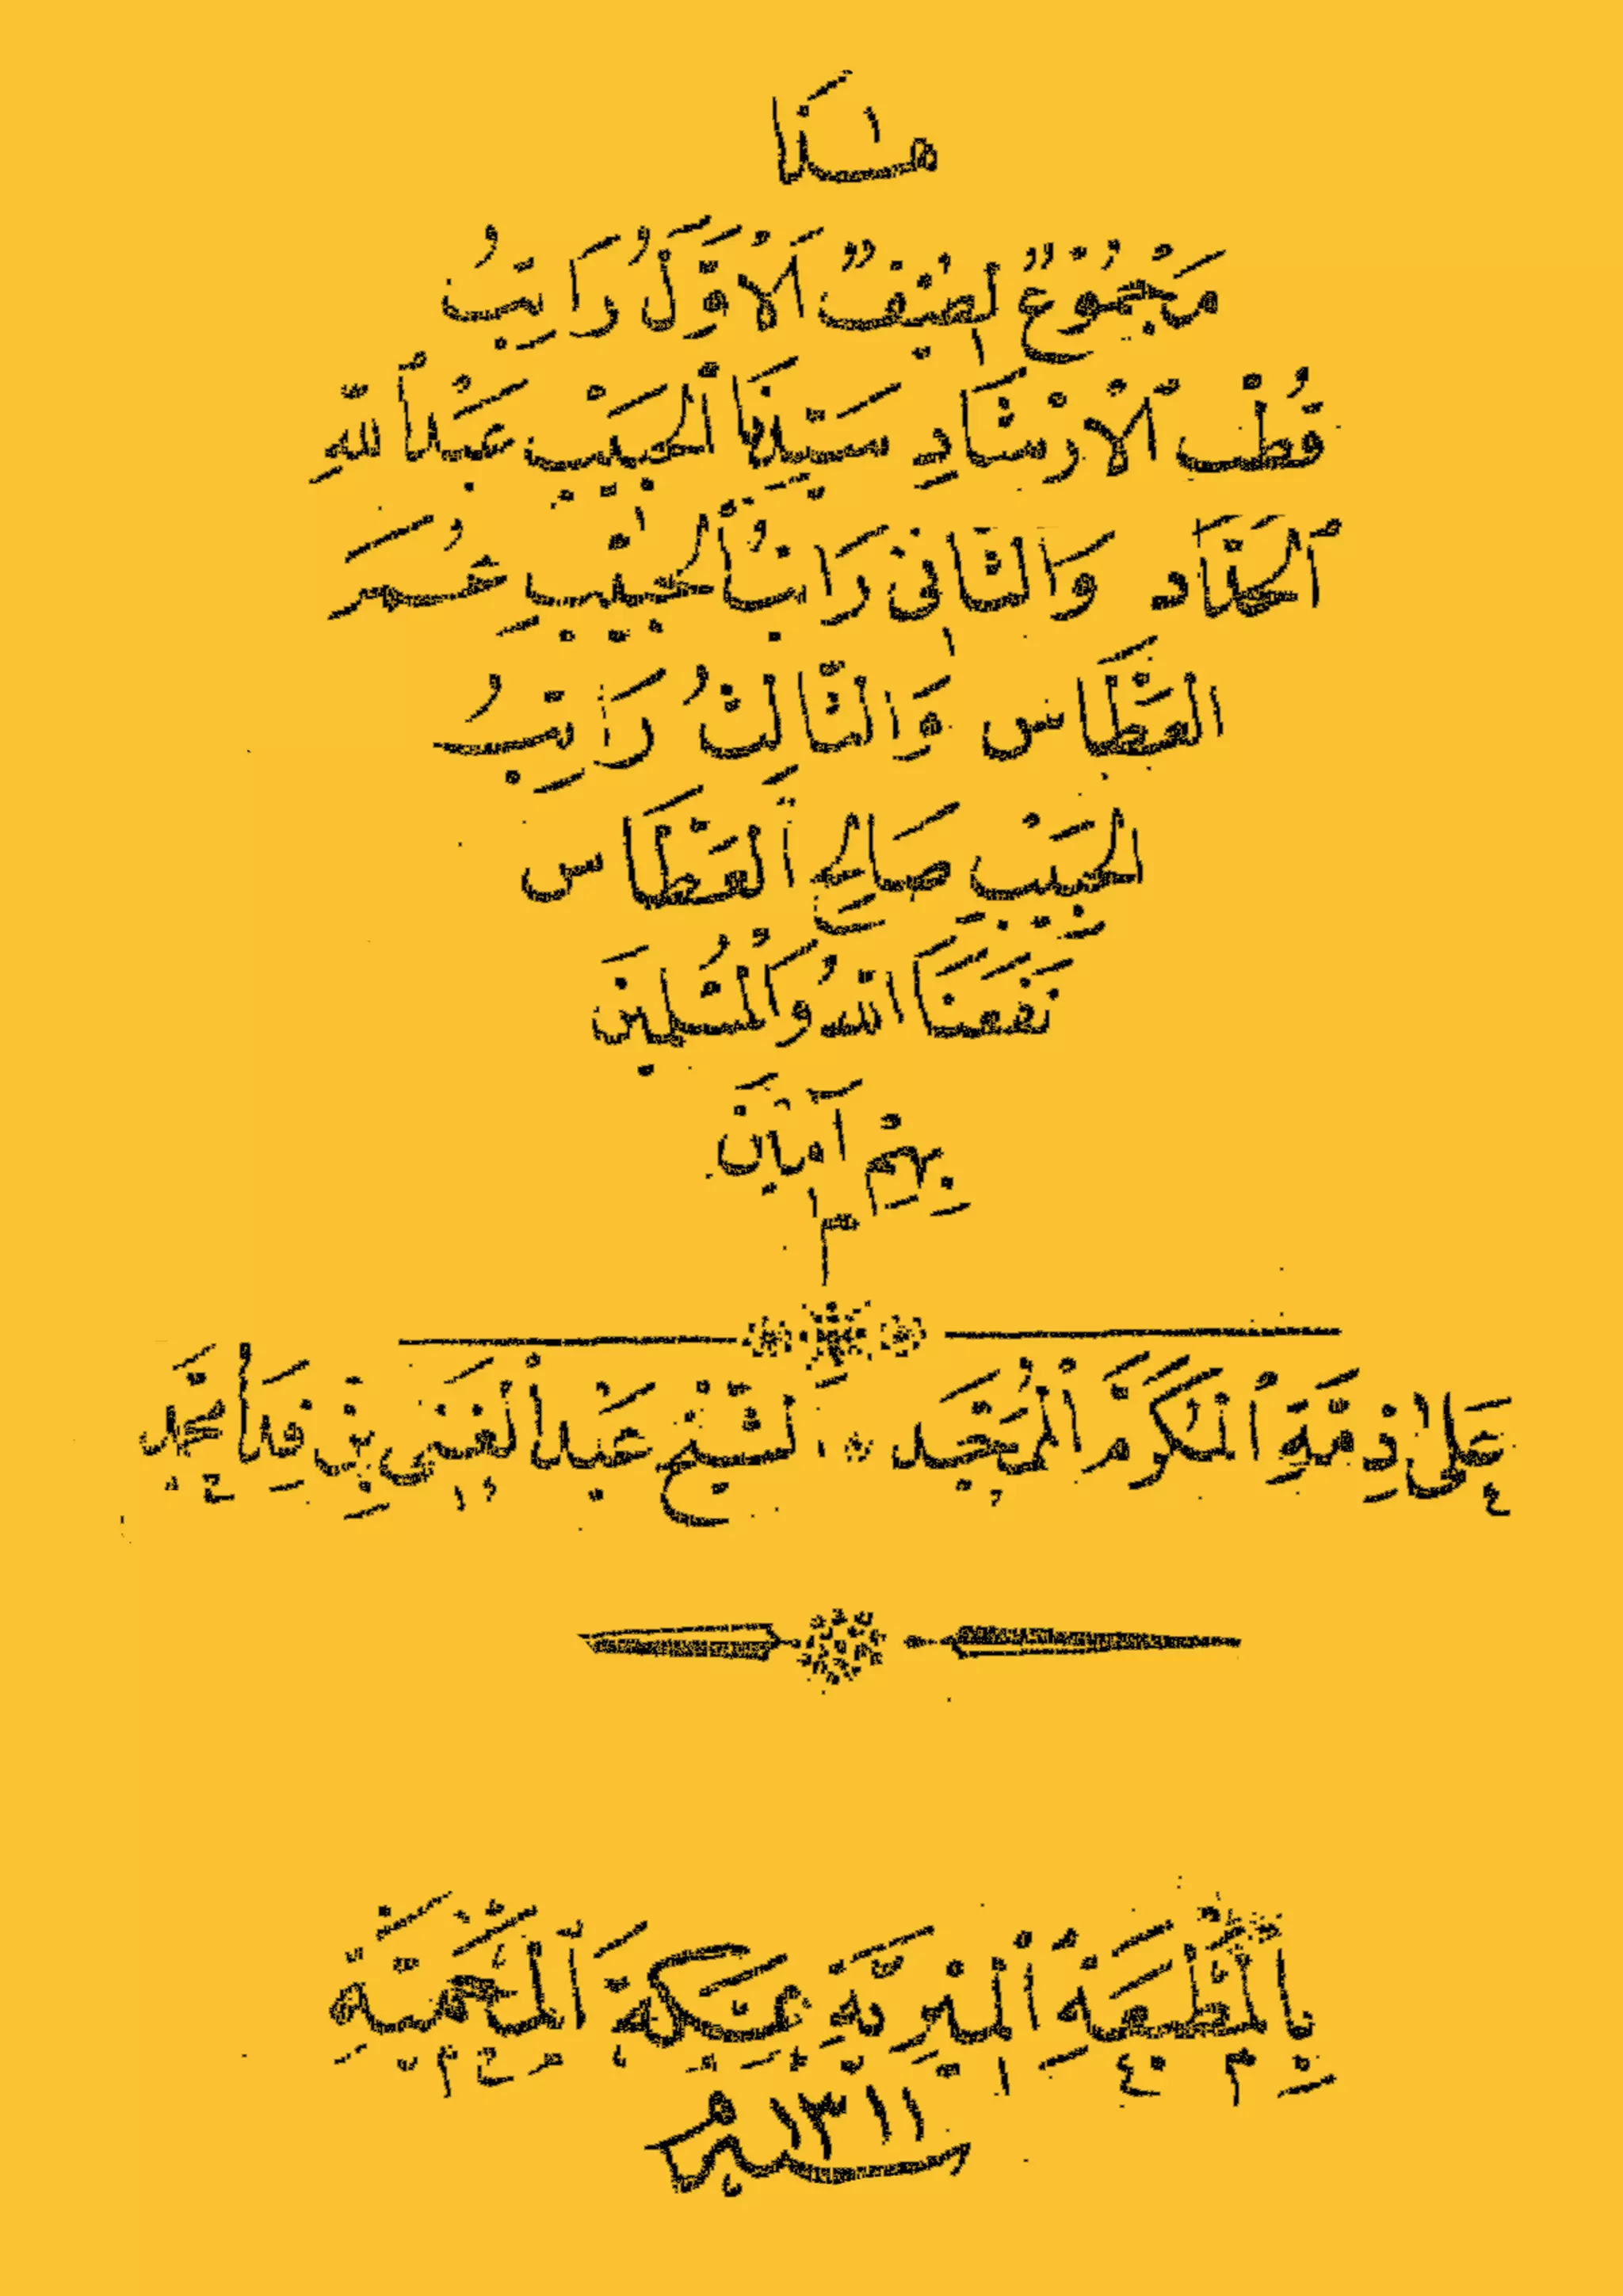 هٰذَا
مَجْمُوْعٌ لَصِيْفٌ اَلْاَوَّلُ رَاتِبُ
قُطْبِ الْاِرْشَادِ سَيِّدِنَا الْحَبِيْبِ عَبْدُ اللّٰهِ
الْحَدَّاد وَالثَّانِى رَاتِبُ الْحَبِيْبِ عُمَر
العَطَّاس وَالثَّالِثُ رَاتِبُ
الحَبِيْبِ صَالِحِ العَطَّاس
نَفَعَنَا اللهُ وَالْمُسْلِمِيْنَ
بِهِمْ آمِيْنَ
م
عَلَى ذِمَّةِ الْمُكَرَّمْ الْمُمَجَّد ٭ الشَّيْخ عَبْدُ الْغَنِى بِنْ فِدَا مُحَمَّد
بِالْمَطْبَعَةِ الْمِيْرِيَّةِ بِمَكَّةَ الْمَحْمِيَّةِ
سنة ١٣١١